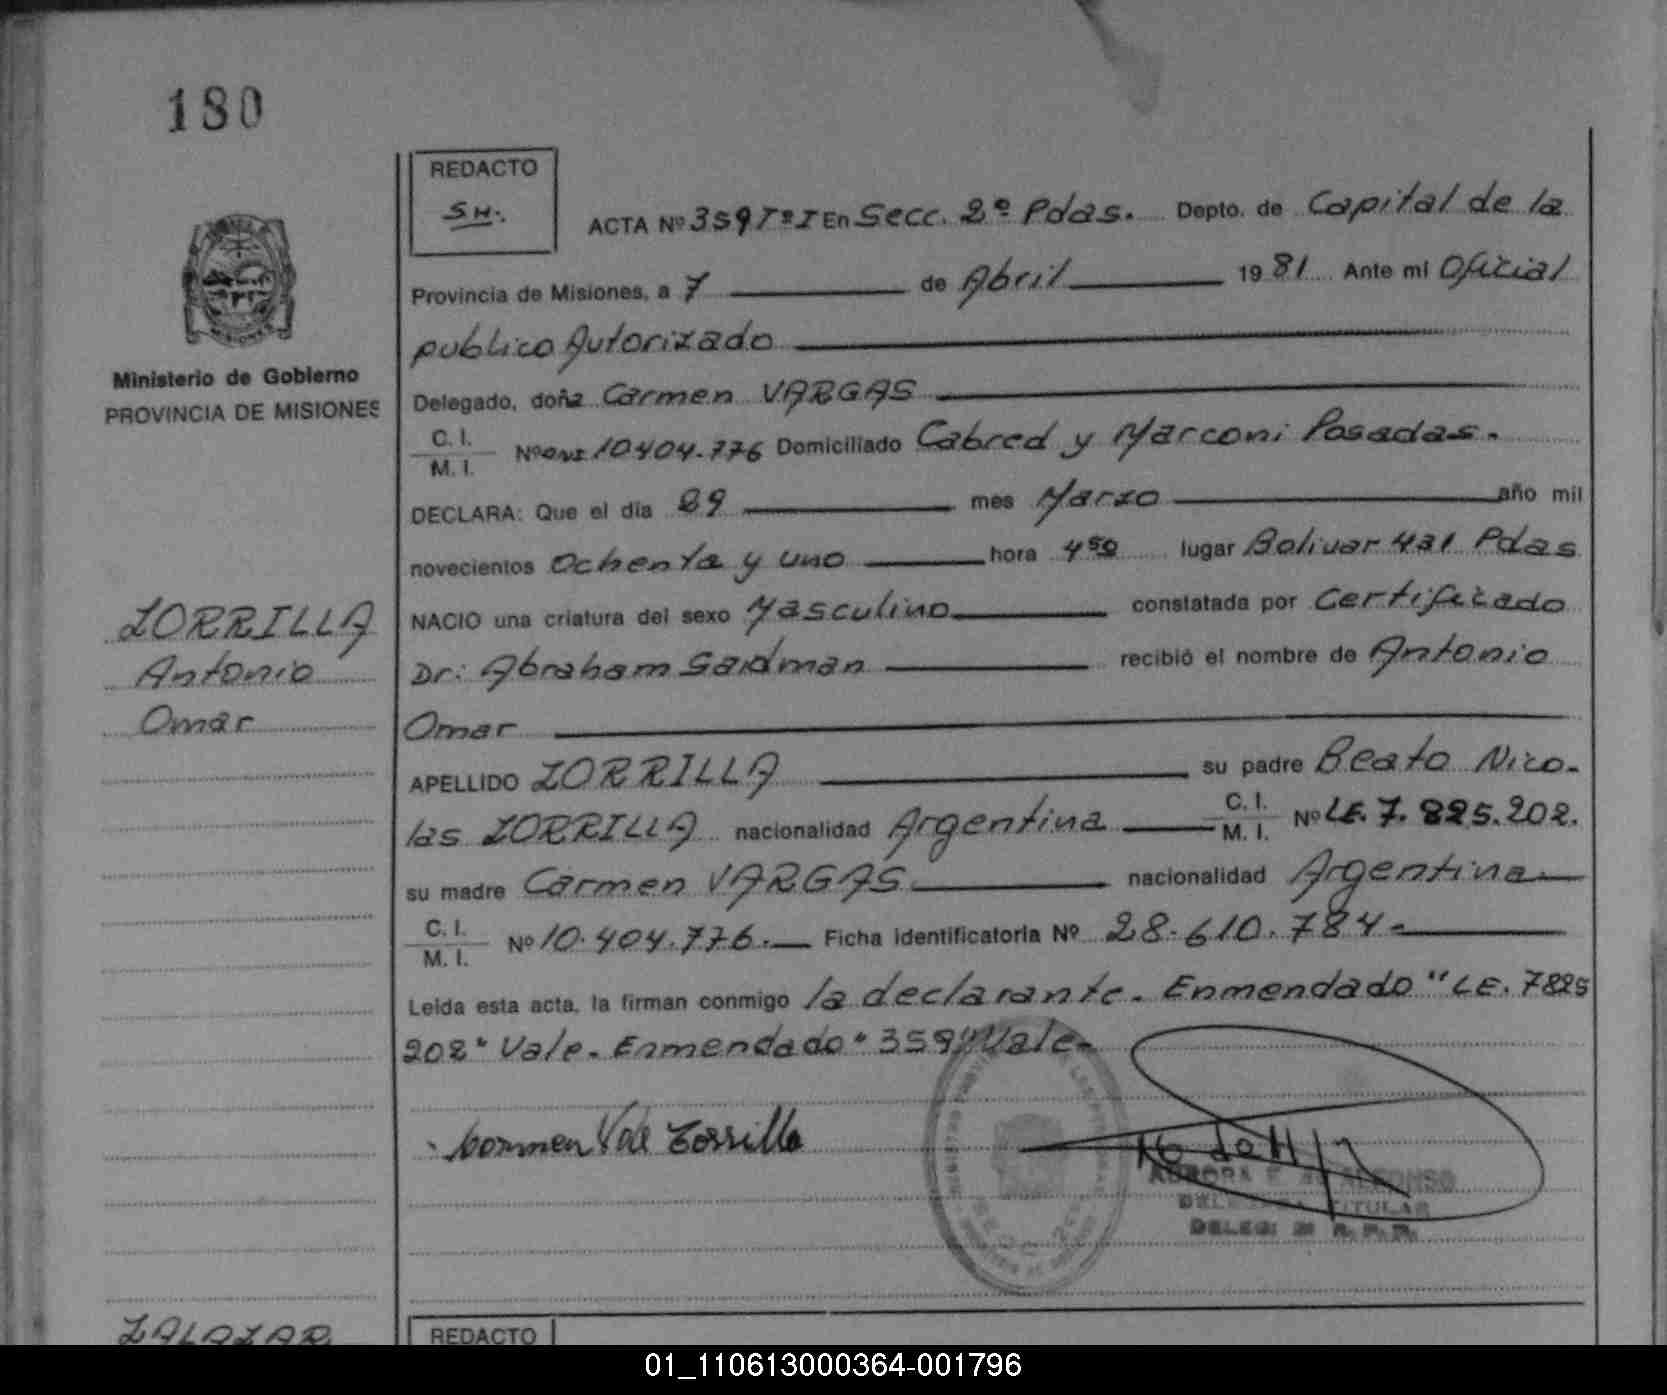 180
REDACTO
SH.
ACTA Nº 359 Tº I En Secc. 2º Pdas. Depto. de Capital de la
Provincia de Misiones, a 7 de Abril 1981 Ante mí Oficial
publico Autorizado
Ministerio de Gobierno
PROVINCIA DE MISIONES
Delegado, doña Carmen VARGAS
C. I.
M. I. Nº DNI 10.404.776 Domiciliado Cabred y Marconi Posadas.
DECLARA: Que el día 29 mes Marzo año mil
novecientos Ochenta y uno hora 4 50 lugar Bolivar 421 Pdas
ZORRILLA
Antonio
Omar
NACIO una criatura del sexo Masculino constatada por Certificado
Dr: Abraham Saidman recibió el nombre de Antonio
Omar
APELLIDO ZORRILLA su padre Beato Nico-
las ZORRILLA nacionalidad Argentina C. I. M. I. Nº LE. 7.825.202.
su madre Carmen VARGAS nacionalidad Argentina
C. I.
M. I. Nº 10.404.776. Ficha identificatoria Nº 28.610.784-
Leída esta acta, la firman conmigo la declarante. Enmendado "LE. 7825
202" Vale. Enmendado "359" Vale-
Carmen V de Zorrilla
AURORA E. ALFONSO
DELEGADA TITULAR
ZALAZAR
REDACTO
01_110613000364-001796